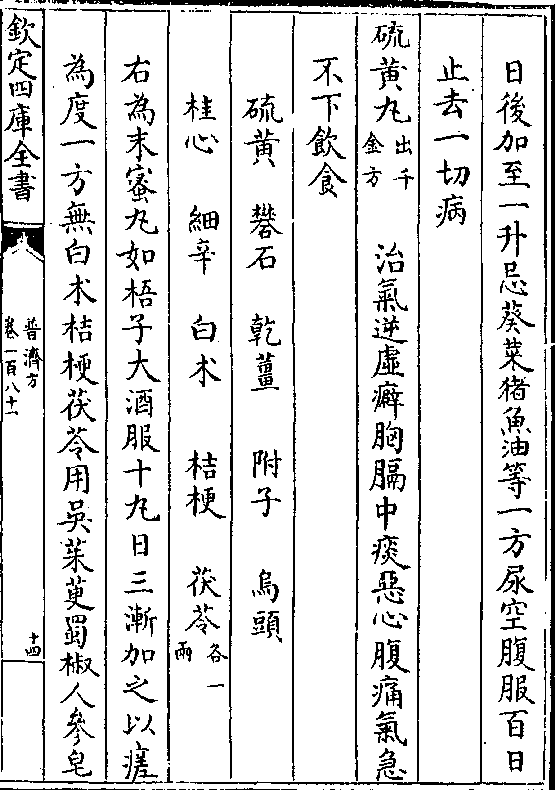 日後加至一升忌葵菜猪魚油等一方尿空腹服百日
止去一切病
硫黄丸出千金方　治氣逆虚癖胸膈中痰惡心腹痛氣急
不下飲食
硫黄　礬石　乾薑　附子　烏頭
桂心　細辛　白术　桔梗　茯苓各一兩
右為末蜜丸如梧子大酒服十丸日三漸加之以瘥
為度一方無白术桔梗茯苓用吳茱萸蜀椒人參皂
欽定四庫全書
普濟方
卷一百八十一
十四